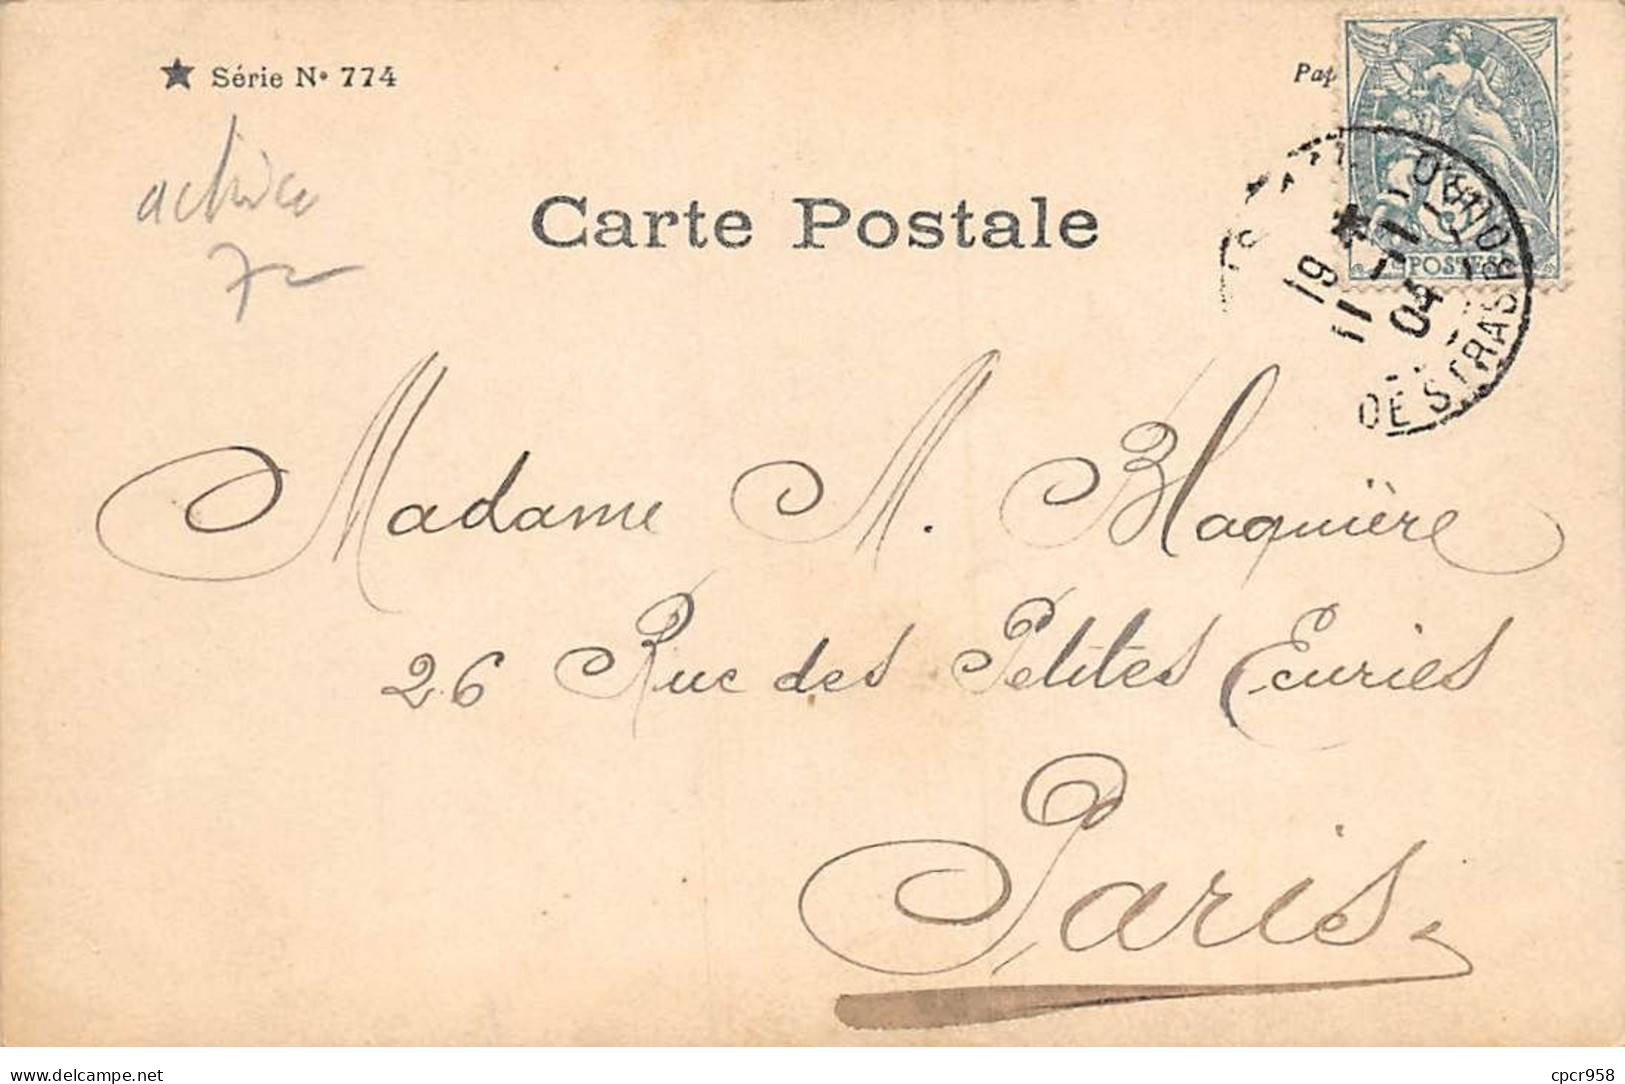 ★ Série No 774
Pap
actrice
72
Carte Postale
POSTES
19 * 11 -11 04
BOUL. DE STRASB
Madame M. Blaquière
26 Rue des Petites Ecuries
Paris.
delcampe.net
cpcr958